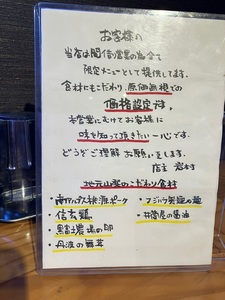 お客様へ
当店は間借り営業の為全て
限定メニューとして提供してます。
食材にもこだわり、原価価格での
価格設定です。
本営業にむけてお客様に
味を知って頂きたい一心です。
どうぞご理解お願いをします。
店主 岩村
地元山梨のこだわり食材
・南アルプス桃源ポーク
・信玄鶏
・黒富士農場の卵
・丹波の舞茸
・フジハラ製麺の麺
・井筒屋の醤油